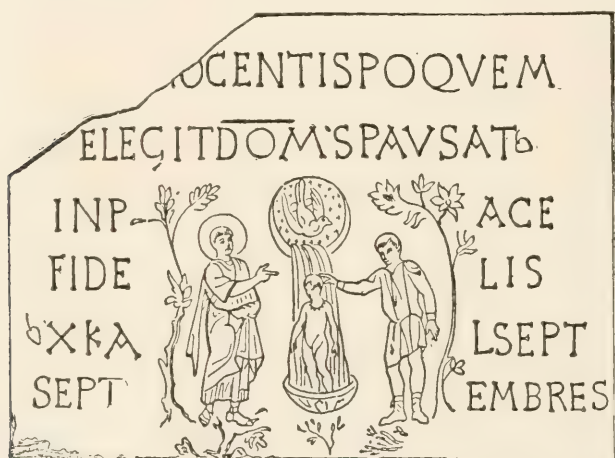 OCENTISPOQVEM
ELEGITDOM'SPAVSAT
INP ACE
FIDE LIS
XKA LSEPT
SEPT EMBRES